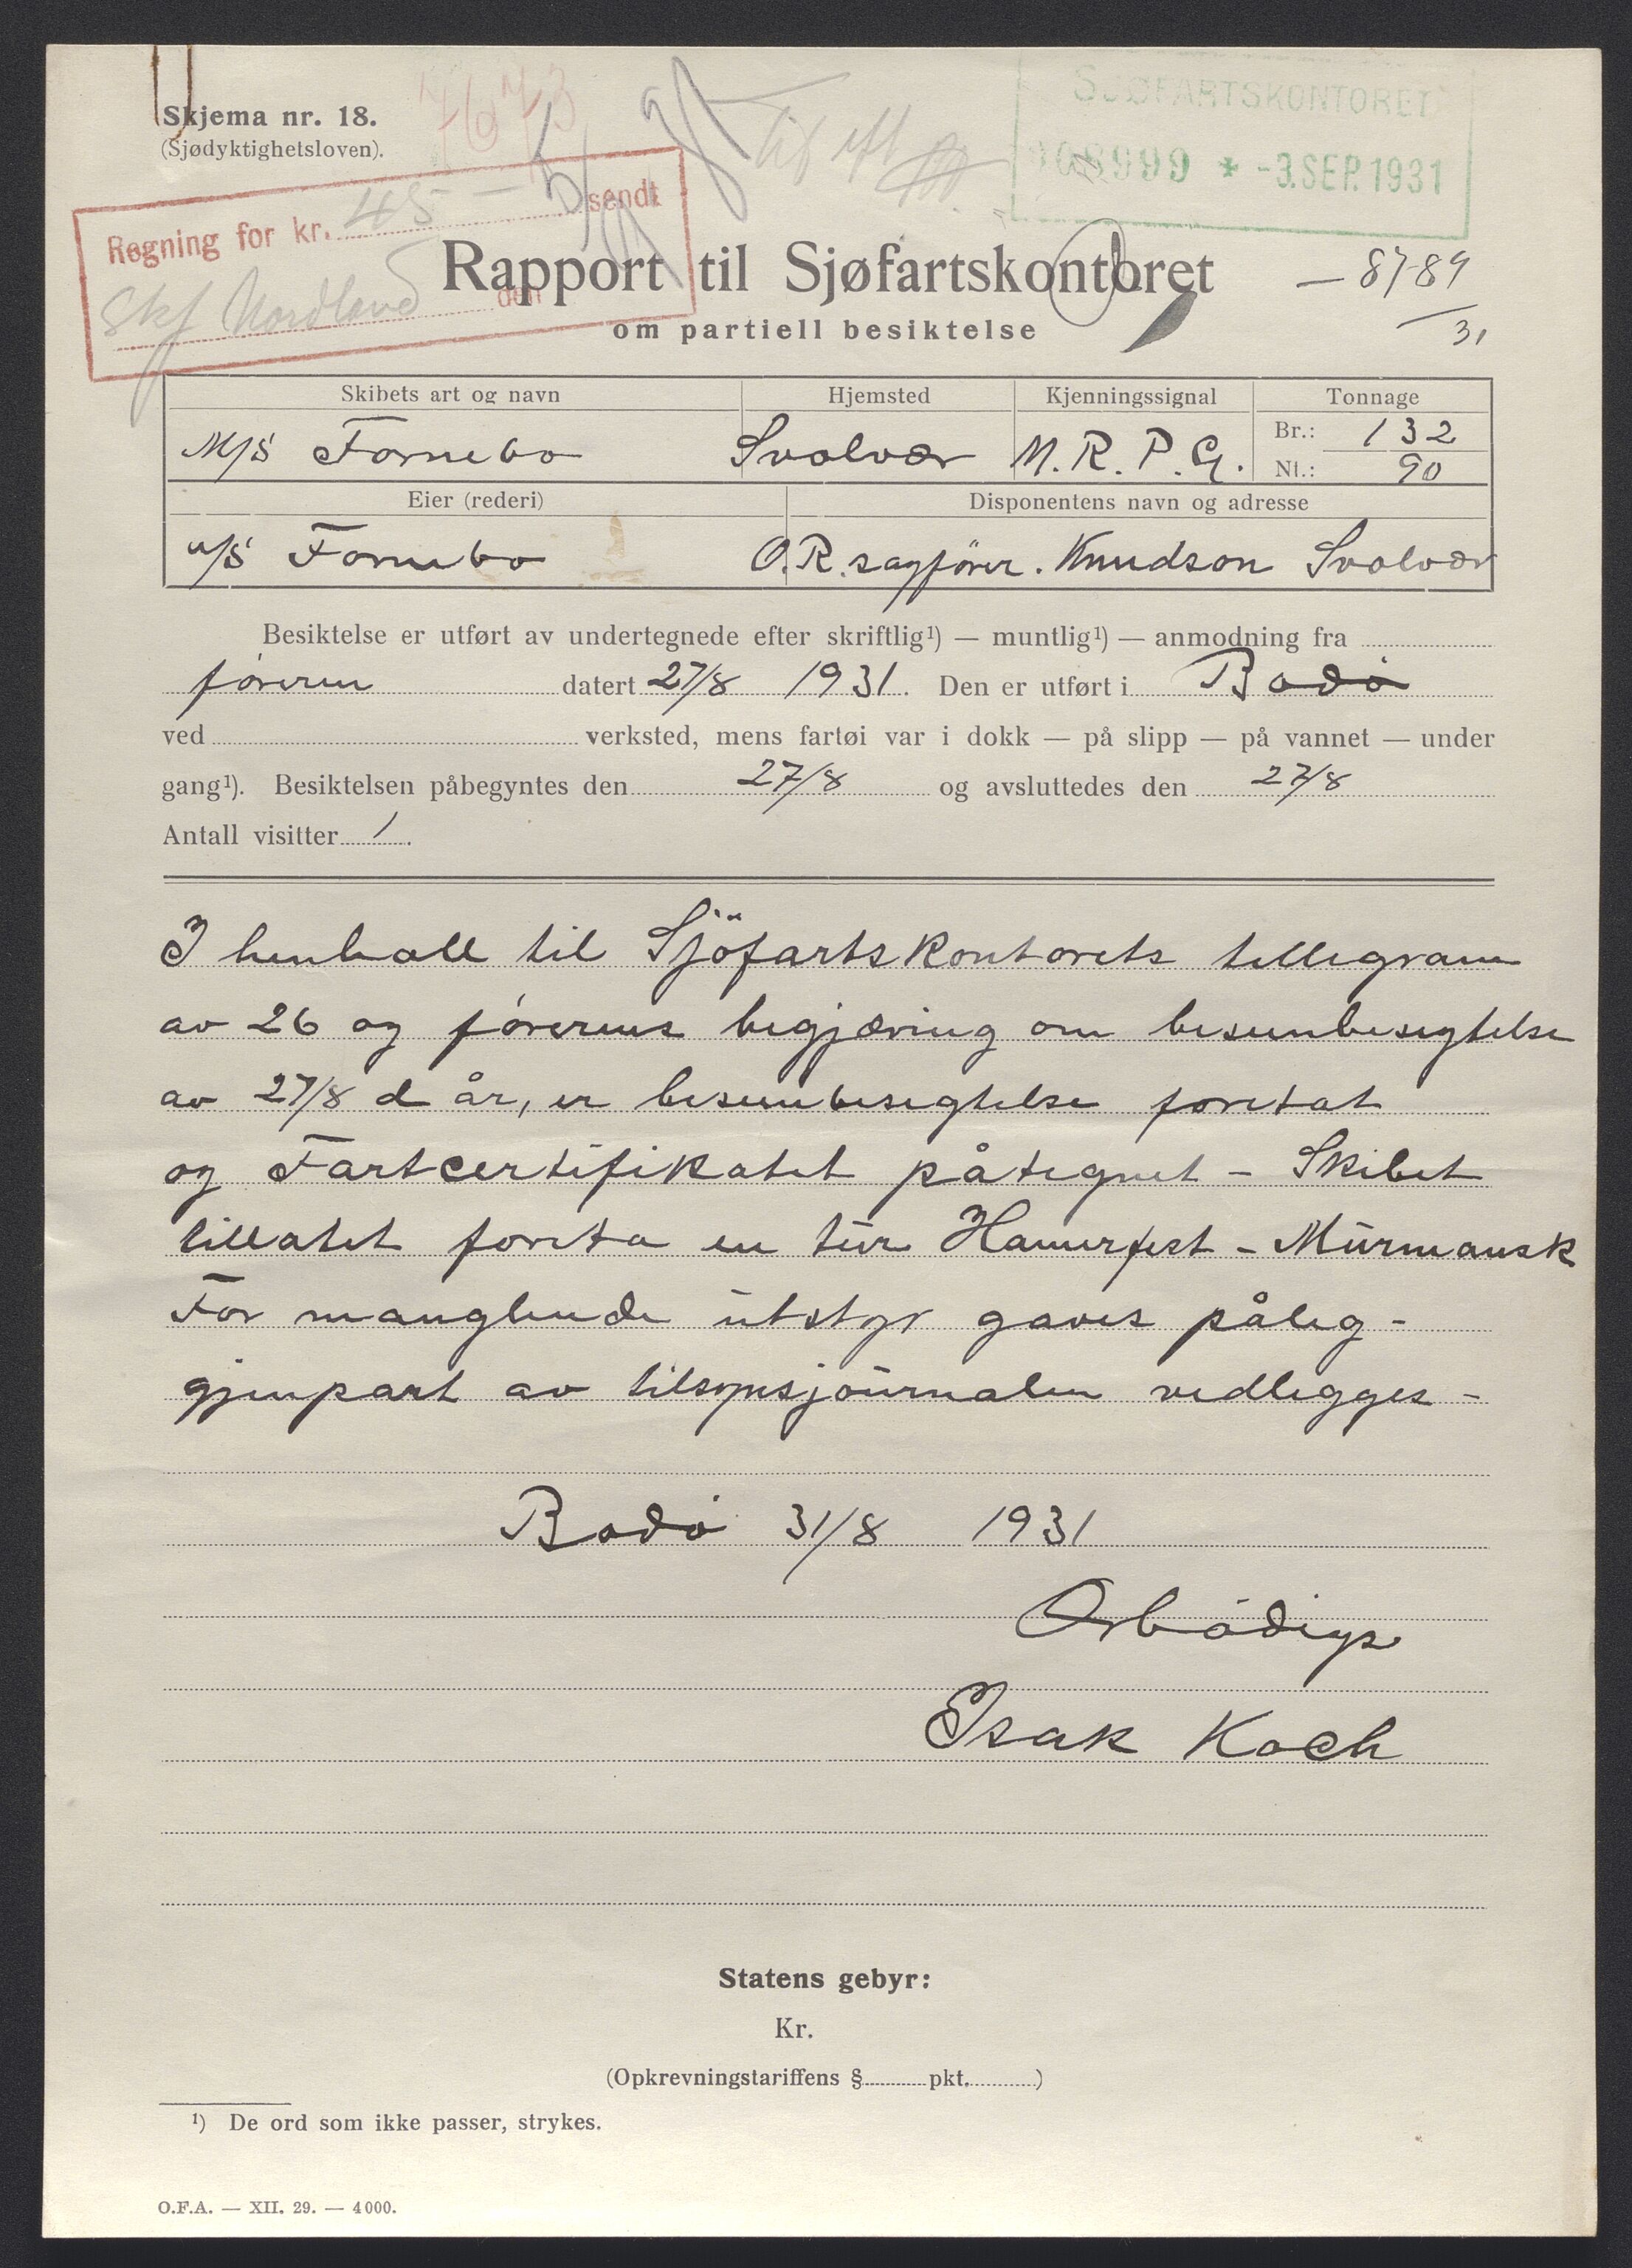 Skjema nr. 18.
(Sjødyktighetsloven).
7673
SJØFARTSKONTORET
08999 * -3.SEP.1931
Regning for kr. 45 - sendt
Skf Nordland den
Rapport til Sjøfartskontoret
om partiell besiktelse
— 8789
31
Skibets art og navn Hjemsted Kjenningssignal Tonnage
M/S Fornebo Svolvær M.R.P.G. Br.: 132
Nt.: 90
Eier (rederi) Disponentens navn og adresse
a/s Fornebo O.R.sagfører. Knudson Svolvær
Besiktelse er utført av undertegnede efter skriftlig¹) — muntlig¹) — anmodning fra
føreren datert 27/8 1931. Den er utført i Bodø
ved verksted, mens fartøi var i dokk — på slipp — på vannet — under
gang¹). Besiktelsen påbegyntes den 27/8 og avsluttedes den 27/8
Antall visitter 1.
I henhall til Sjöfartskontorets tellegram
av 26 og førerens begjæring om besigtbesigtelse
av 27/8 d år, er foretat
og Fartcertifikatet påtegnet - Skibet
tillatet foreta en tür Hamerfest - Mürmansk
For manglende ütstyr gaves påleg -
gjenpart av tilsynsjoürnalen vedlegges -
Bodø 31/8 1931
Ærbødigs
Isak Koch
Statens gebyr:
Kr.
(Opkrevningstariffens § pkt. )
¹) De ord som ikke passer, strykes.
O.F.A. — XII. 29. — 4000.